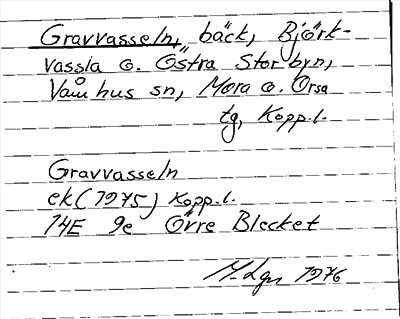 Gravvasseln, bäck, Björk-
vassla o. Östra Storbyn,
Våmhus sn, Mora o. Orsa
tg, Kopp.l.
Gravvasseln
ek (1975) Kopp.l.
14E 9e Övre Blecket
M. Lgn 1976